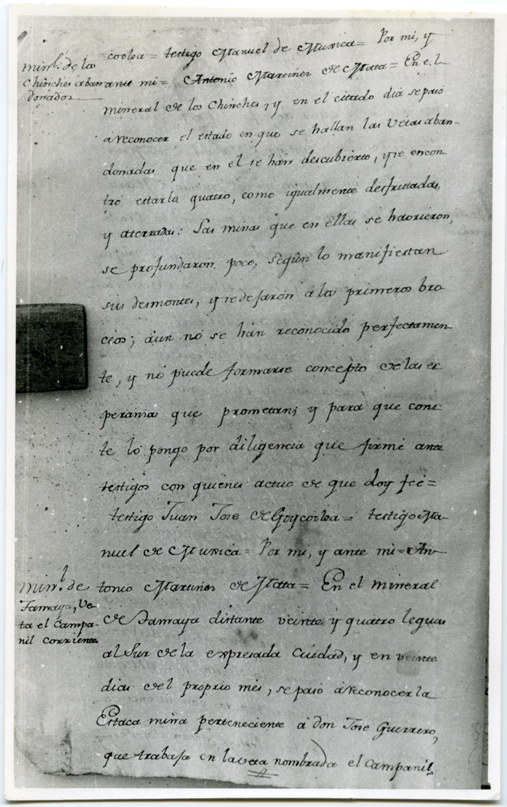 coolea = testigo Manuel de Muxica = Por mi, y
minl. de los
Chinches aban
donados
ante mi = Antonio Martines de Mata = En el
mineral de los Chinches, y en el citado dia se paso
a reconocer el estado en que se hallan las Vetas aban-
donadas que en el se hàn descubierto, y se encon
trò estarla quatro, como igualmente desfrutadas,
y aterradas: Las minas que en ellas se havrieron,
se profundaron poco, segùn lo manifiestan
sus desmontes, y se dejaron à los primeros bro
cios; aùn no se hàn reconocido perfectamen-
te, y nò puede formarse concepto de las es
peranzas que prometan; y para que cons
te lò pongo por diligencia que firmè ante
testigos con quienes actuo de que doy feè =
testigo Juan Jose de Goycoolea = testigo Ma-
nuel de Muxica = Por mi, y ante mi = An-
minl. de
Tamaya, Ve-
ta el Campa-
nil corriente
tonio Martines de Mata = En el mineral
de Tamaya distante veinte y quatro leguas
al Sur de la expresada Ciudad, y en veinte
dias del proprio mes, se paso à reconocer la
Estaca mina perteneciente à don Jose Guerrero,
que trabaja en la veta nombrada el Campanil